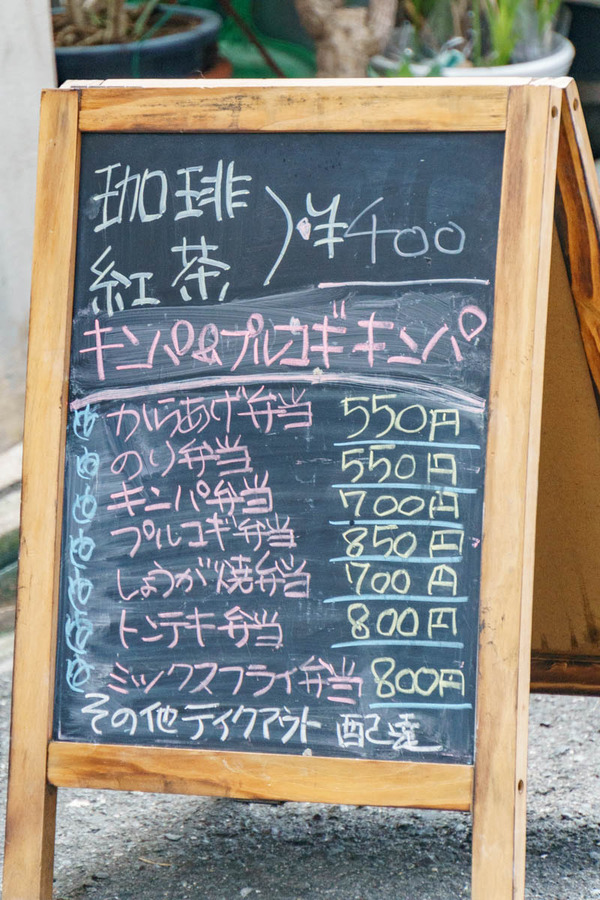 珈琲
紅茶
)¥400
キンパ&プルコギキンパ
からあげ弁当 550円
のり弁当 550円
キンパ弁当 700円
プルコギ弁当 850円
しょうが焼弁当 700円
トンテキ弁当 800円
ミックスフライ弁当 800円
その他テイクアウト 配達